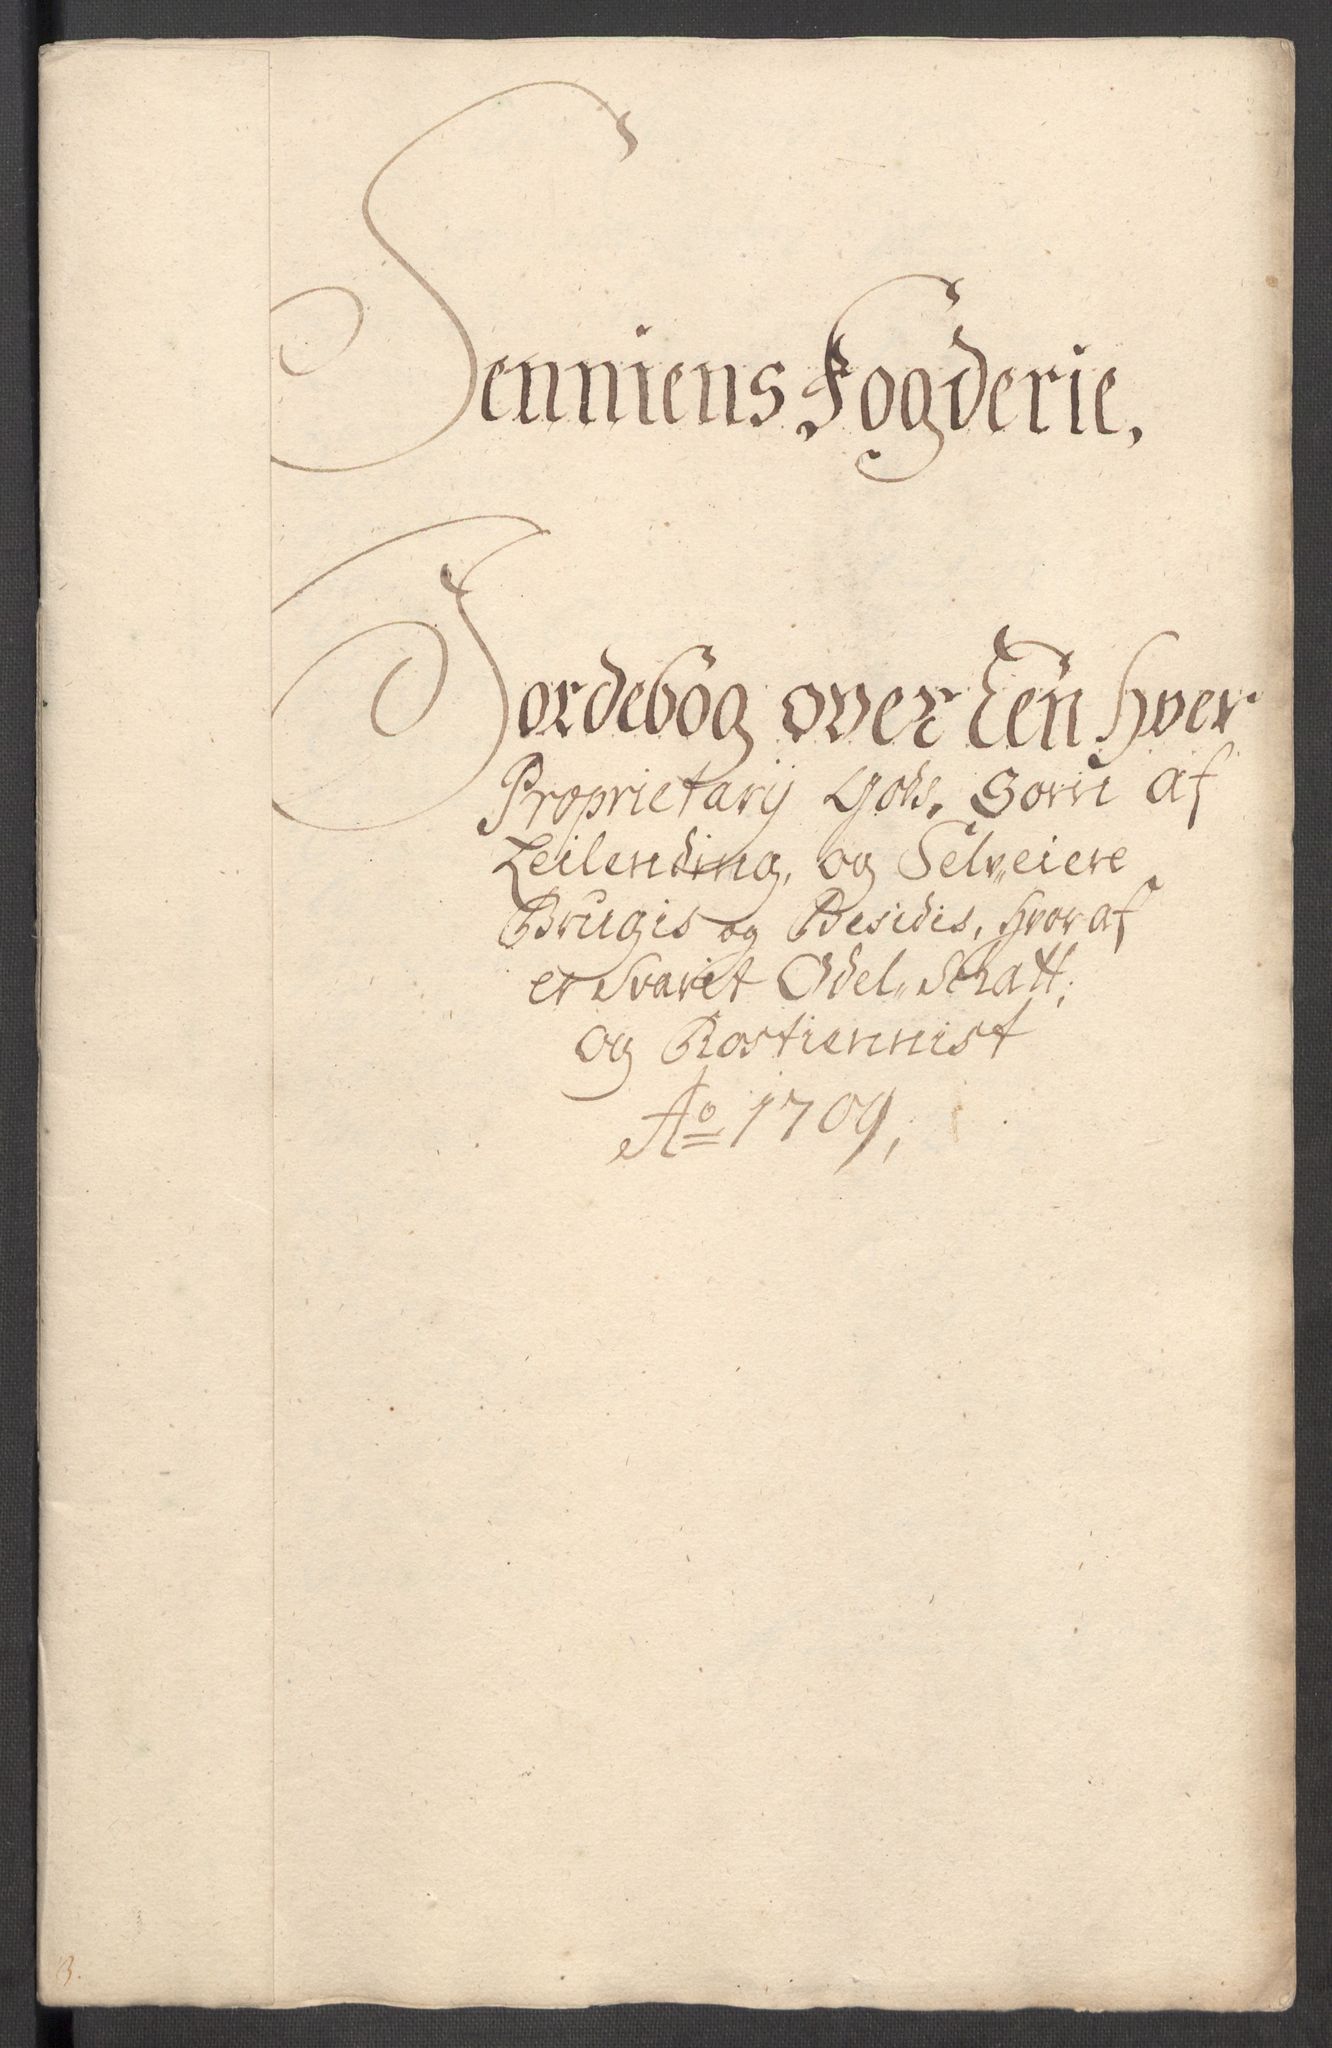 Senniens Fogderie,
Jordebog over Een hver
Proprietarij Gods, Som af
Leilending, og Selv„eiere
Brugis og Besidis, hvoraf
er Svarit Odel„Skatt,
og Rostiennist
Ao 1709,